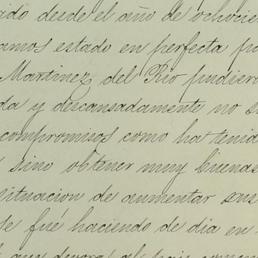 ido desde el año de ochocie
amos estado en perfecta
Martinez del Rio pudiero
da y descansadamente no
compromisos como ha tenid
sino obtener muy buenas
situacion de aumentar sus
se fué haciendo de dia en